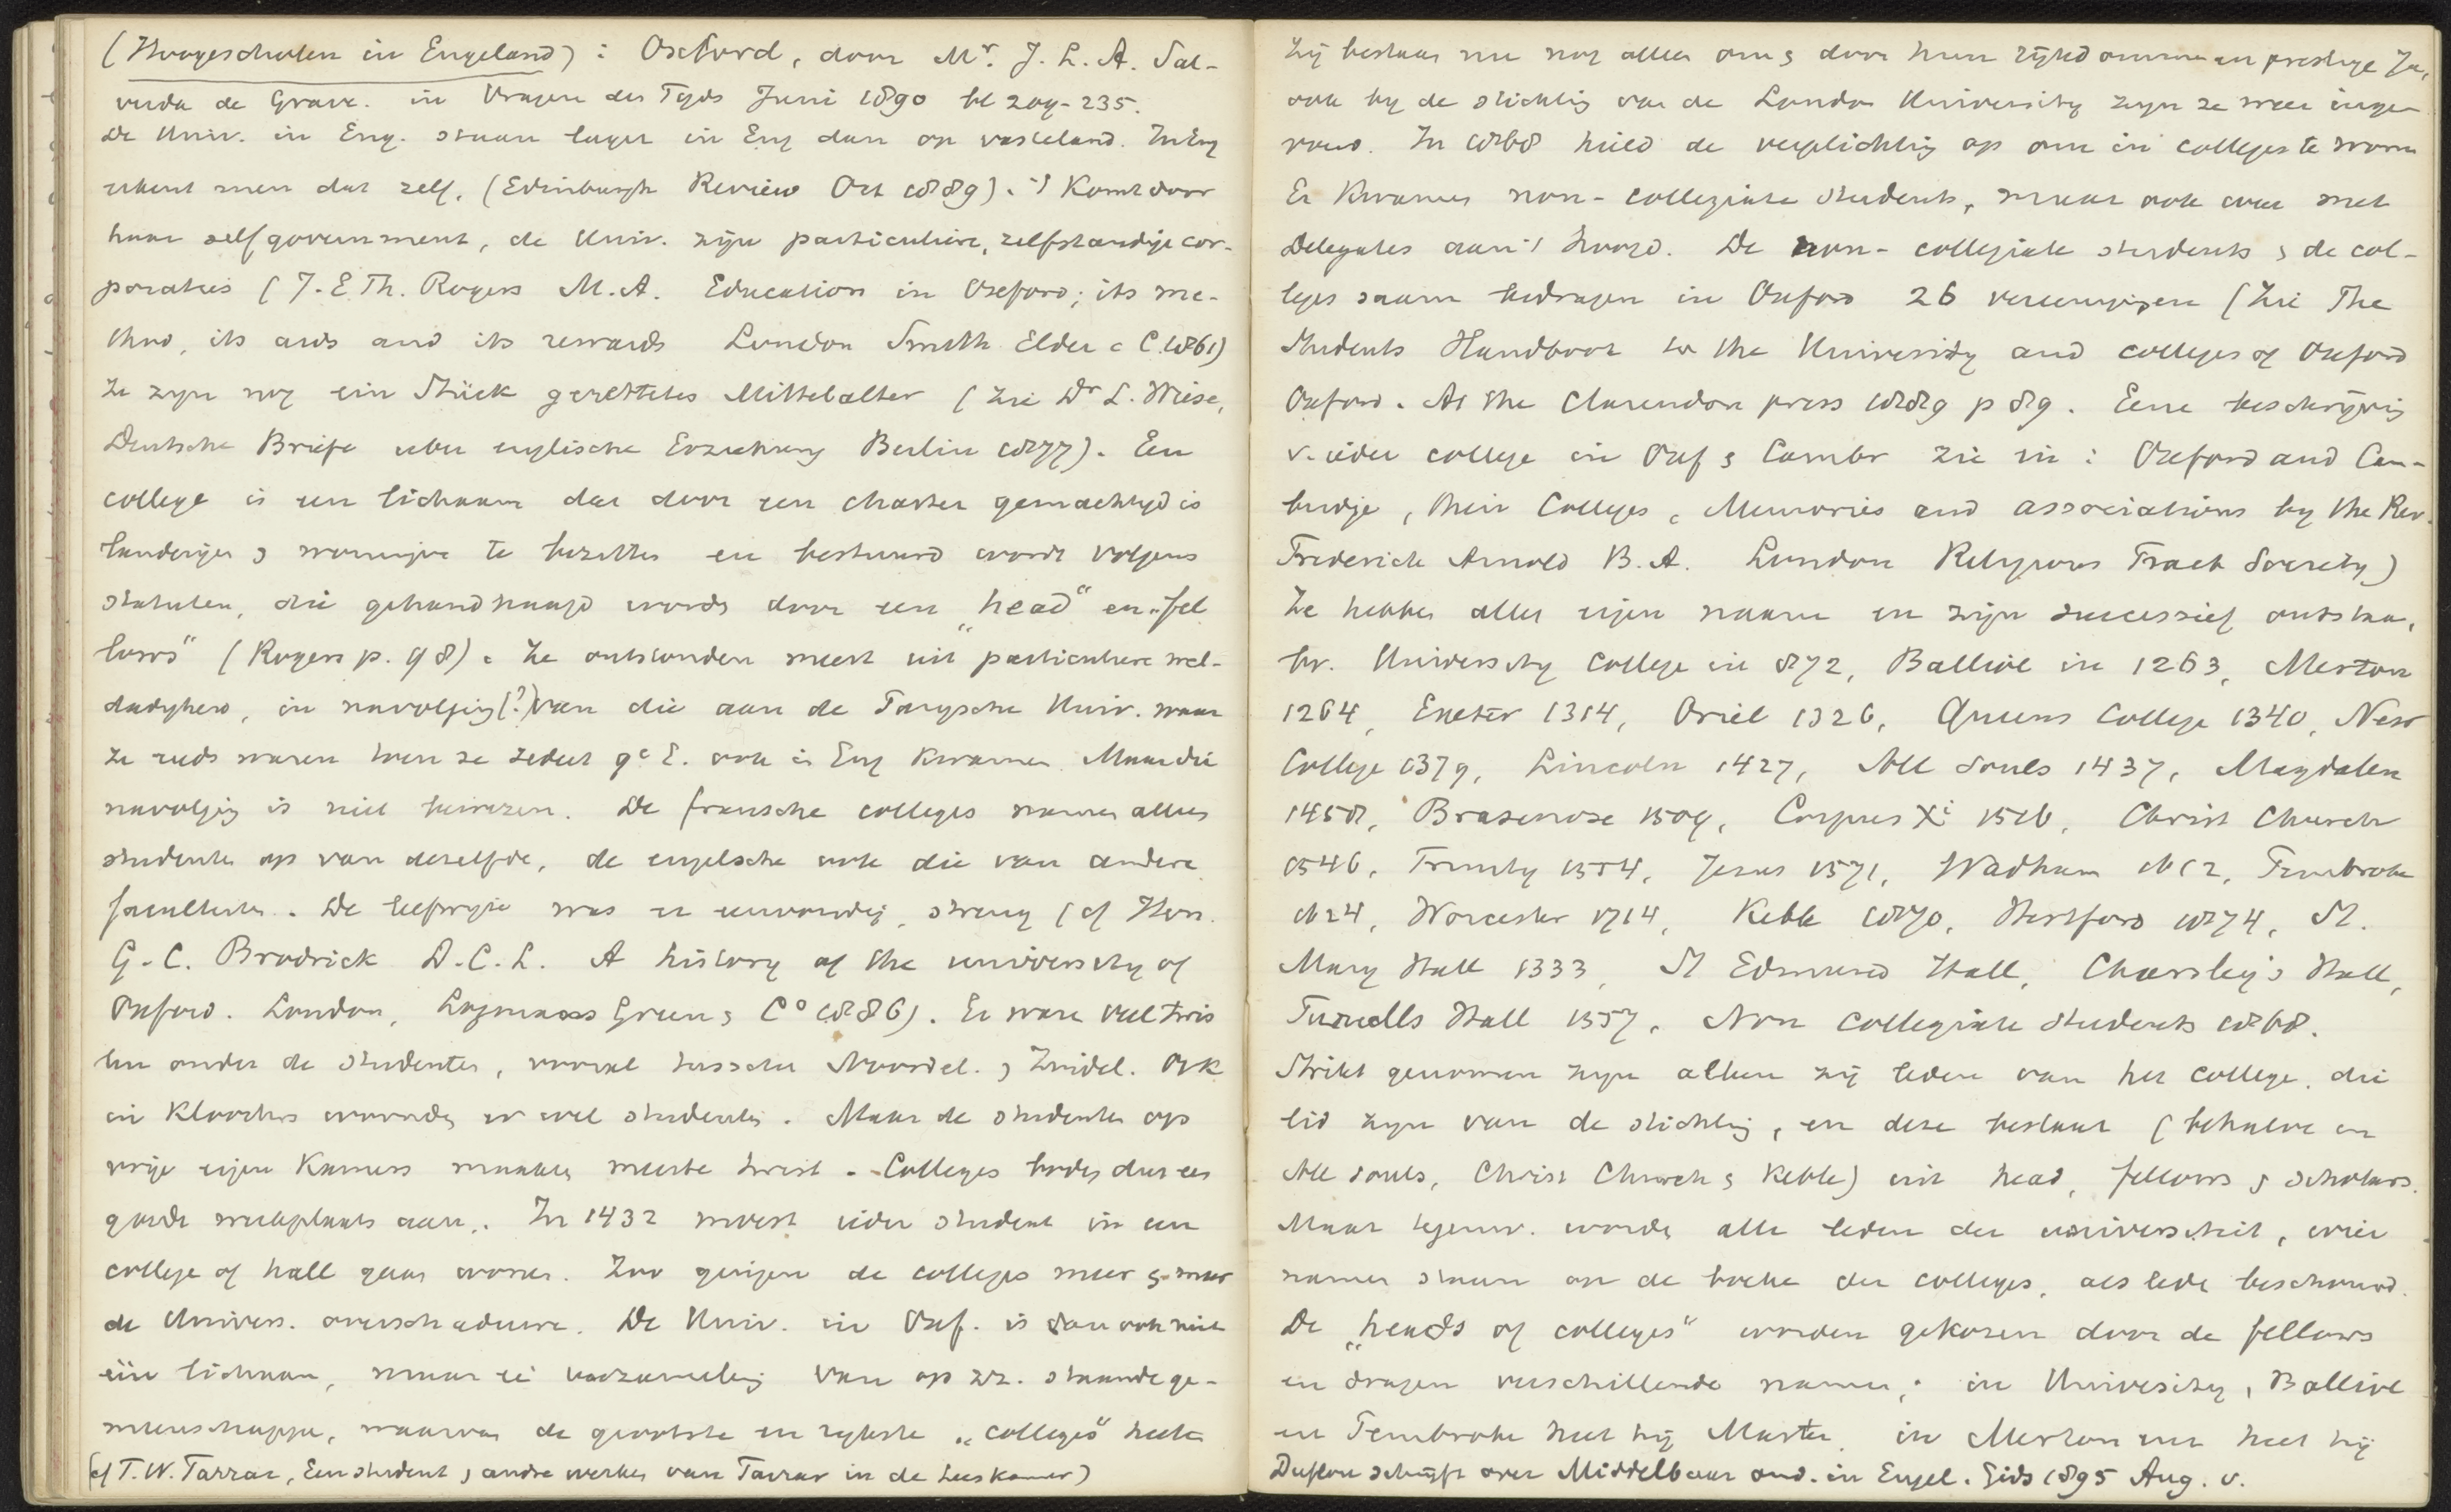 (Hoogescholen in Engeland) : Oxford, door Mr. J. L. A. Sal-
verda de Grave. in Vragen des Tijds Juni 1890 bl 209-235.
De Univ. in Eng. staan lager in Eng dan op vasteland. In Eng
erkent men dat zelf. (Edinburgh Review Oct 1889). 't Komt door
haar selfgovernment, de Univ. zijn particuliere, zelfstandige cor-
poraties (J. E. Th. Rogers M.A. Education in Oxford; its me-
thod, its aids and its rewards London Smith Elder & C. 1861)
Ze zyn nog ein Stück gerettetes Mittelalter (Zie Dr L. Wiese,
Deutsche Briefe uber englische Erziehung Berlin 1877). Een
college is een lichaam dat door een charter gemachtigd is
landerijen & woningen te bezitten en bestuurd wordt volgens
statuten, die gehandhaafd worden door een „head" en „fel
lows" (Rogers p. 98). Ze ontstonden meest uit particuliere wel-
dadigheid, in navolging (?) van die aan de Parijsche Univ. waar
ze reeds waren toen ze sedert 9e E. ook in Eng kwamen. Maar die
navolging is niet bewezen. De fransche colleges namen alleen
studenten op van dezelfde, de engelsche ook die van andere
faculteiten. De leefwijze was er eenvoudig, streng (cf Hon.
G. C. Brodrick D.C.L. A history of the university of
Oxford. London, Longmans Green & Co 1886). Er ware veel twis
ten onder de studenten, vooral tusschen Noordel. & Zuidel. Ook
in Kloosters woonden er wel studenten. Maar de studenten op
vrije eigen Kamers maakten meeste twist. - Colleges boden dus een
goede wijkplaats aan. In 1432 moest ieder student in een
college of hall gaan wonen. Zoo gingen de colleges meer & meer
de Univers. overschaduwen. De Univ. in Oxf. is dan ook niet
één lichaam, maar ee verzameling van op zz. staande ge-
meenschappen, waarvan de grootste en rijkste „colleges" heeten
(cf F. W. Farrar, Een student & andre werken van Farrar in de Leeskamer)
Zij bestaan nu nog alleen om & door hun rijkdommen en prestige. Ja,
ook bij de stichting van de London University zijn ze weer inge-
voerd. In 1868 hield de verplichting op om in colleges te wonen
Er Kwamen non-collegiate students, maar ook over met
Delegates aan 't hoofd. De non-collegiate students & de col-
leges saam bedragen in Oxford 26 vereenigingen (Zie The
Students Handbook to the University and colleges of Oxford
Oxford. At the Clarendon press 1889 p 89. Eene beschrijving
v. ieder college in Oxf & Cambr zie in : Oxford and Cam-
bridge, their Colleges, Memories and associations by the Rev.
Frederick Arnold B.A. London Religious Tract Society)
Ze hebben allen eigen naam en zijn successief ontstaan,
bv. University College in 872, Balliol in 1263, Merton
1264, Exeter 1314, Oriel 1326, Queens College 1340, New
College 1379, Lincoln 1427, All Souls 1437, Magdalen
1458, Brasenose 1509, Corpus Xi 1516, Christ Church
1546, Trinity 1554, Jesus 1571, Wadham 1612, Pembroke
1624, Worcester 1714, Keble 1870, Hertford 1874, St.
Mary Hall 1333, St Edmund Hall, Charsley's Hall,
Turrells Hall 1557. Non collegiate students 1868.
Strikt genomen zijn alleen zij leden van het college, die
lid zijn van de stichting, en deze bestaat (behalve in
All souls, Christ Church & Keble) uit head, fellows & scholars.
Maar tegenw. worden alle leden der universiteit, wier
namen staan op de boeken der colleges, als leden beschouwd.
De „heads of colleges" worden gekozen door de fellows
en dragen verschillende namen; in University, Balliol
en Pembroke heet hij Master, in Merton heet hij
schrijft over Middelbaar ond. in Engel. Gids 1895 Aug. v.